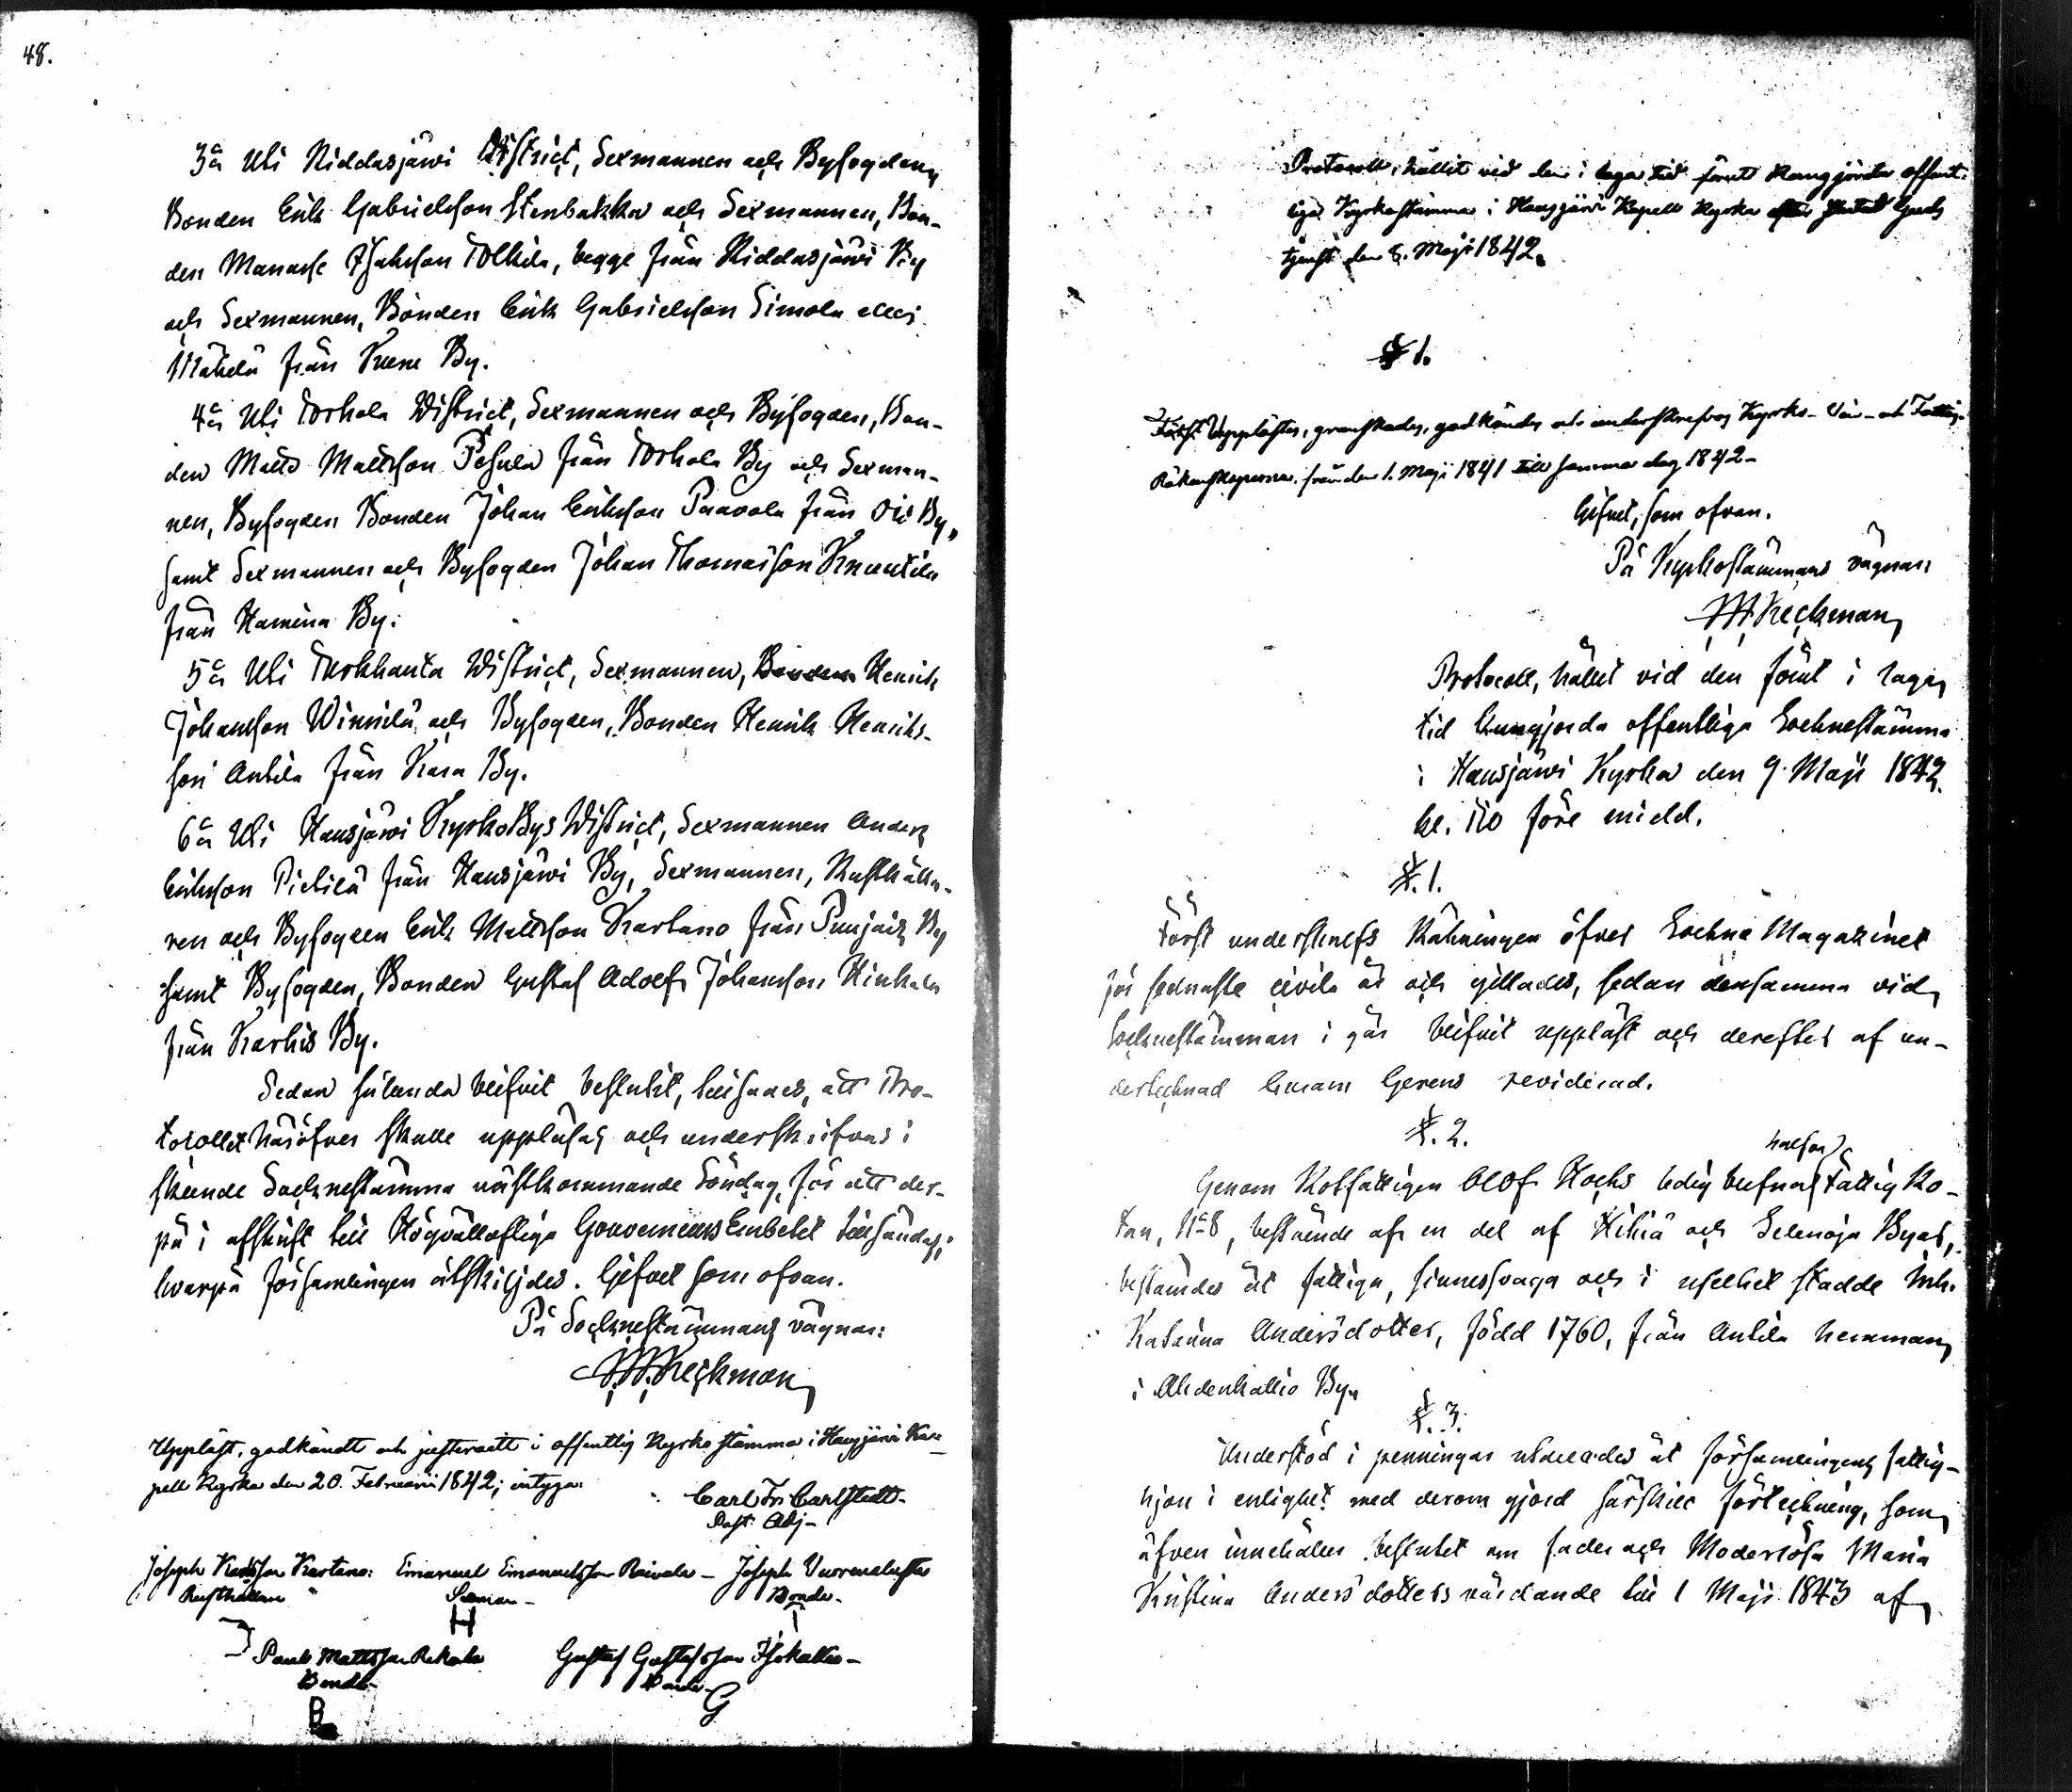 48.
3o Uti Riddasjärvi District, Sexmannen och Byfogden,
Bonden Erik Gabrielsson Stenbakka och Sexmannen, Bon-
den Manasse Isaksson Tolkila, begge från Riddasjärvi By
och Sexmannen, Bonden Erik Gabrielsson Simola eller
Mäkelä från Kuene By.
4o Uti Torhola District, Sexmannen och Byfogden, Bon-
den Matts Mattsson Pesula från Torhola By och Sexman-
nen, Byfogden Bonden Johan Eriksson Paavola från Ois By,
samt Sexmannen och Byfogden Johan Thomasson Knuutila
från Hamina By.
5o Uti Turkhauta District, Sexmannen, Bonden Henrik
Johansson Winnilä och Byfogden, Bonden Henrik Henriks-
son Antila från Kara By.
6o Uti Hausjärvi KyrkoBys District, Sexmannen Anders
Eriksson Pietilä från Hausjärvi By, Sexmannen, Rusthålla-
ren och Byfogden Erik Mattsson Kartano från Punjais By
samt Byfogden, Bonden Gustaf Adolf Johansson Hinkala
från Karhis By.
Sedan sålunda blifvit beslutit, tillsades, att Pro-
tocollet häröfver skulle uppläsas och underskrifvas i
skeende Socknestämma nästkommande Söndag, för att der-
på i afskrift till Högvällofliga Gouvernements Embetet tillsändas;
hvarpå församlingen åtskiljdes. Gifvet som ofvan.
På Sockenestämmans vägnar:
Heckman
Uppläst, godkändt och justeradt i offentlig Kyrkostämma i Hausjärvi Ka-
pell Kyrka den 20. Februarii 1842; intyga:
Carl Fr: Carlstedt.
Past. Adj-
Joseph Kartano: Emanuel Emanuelsson Raivola- Joseph
Rusthållare Sexman- Bonde-
Paul Mattsson Rekola Gustaf Gustafsson Isokallio-
Bonde- Bonde-
B G
Protocoll, hållit vid den i laga tid förut kungjorda offent-
liga Kyrkostämma i Hausjärvi Kapell Kyrka efter slutad Guds
tjenst den 8. Maji 1842.
§ 1.
Först Upplästes, granskades, godkändes och underskrefvos Kyrko- Vin- och Fattig-
Räkenskaperna, från den 1. Maji 1841 till samma dag 1842-
Gifvet, som ofvan.
På Kyrkostämmans vägnar:
Heckman
Protocoll, hållet vid den förut i laga
tid kungjorda offentliga Sockenestämma
i Hausjärvi Kyrka den 9. Maji 1842.
kl. 10 före midd.
§. 1.
Först underskrefs Räkningen öfver Sockne Magazinet
för sednaste civila år och gillades, sedan densamma vid
Socknestämman i går blifvit uppläst och derefter af un-
dertecknad genom Gerens reviderad.
§. 2.
halfva
Genom Rotfattigen Olof Höcks ledig blefna Fattig Ro-
tan, No 8, bestående af en del af Hikiä och Selenoja Byar,
bestämdes åt fattiga, sinnessvaga och i uselhet stadde Inh.
Katarina Andersdotter, född 1760, från Antila hemman
i Ahdenkallio By.
§. 3.
Understöd i penningar utdelades åt församlingens fattig-
hjon i enlighet med derom gjord särskild förteckning, som
äfven innehåller beslutet om fader och Moderlösa Maria
Kristina Anders dotters vårdande till 1 Maji 1843 af